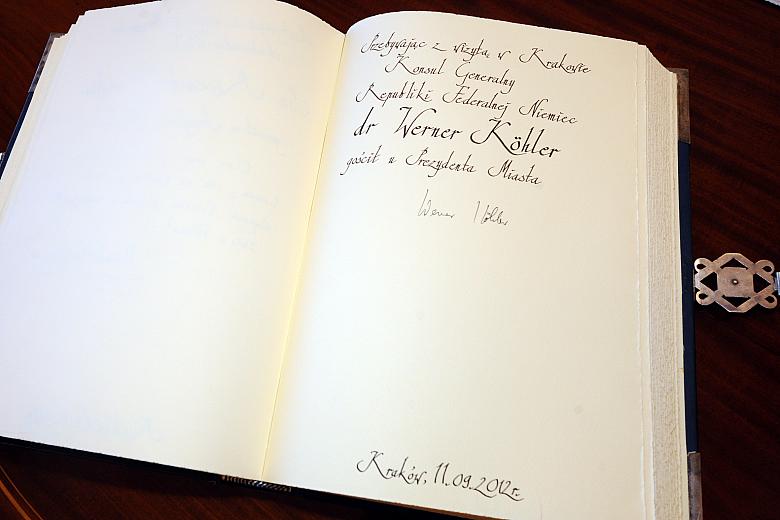 Przebywając z wizytą w Krakowie
Konsul Generalny
Republiki Federalnej Niemiec
dr Werner Köhler
gościł u Prezydenta Miasta
Werner Köhler
Kraków, 11.09.2012r.